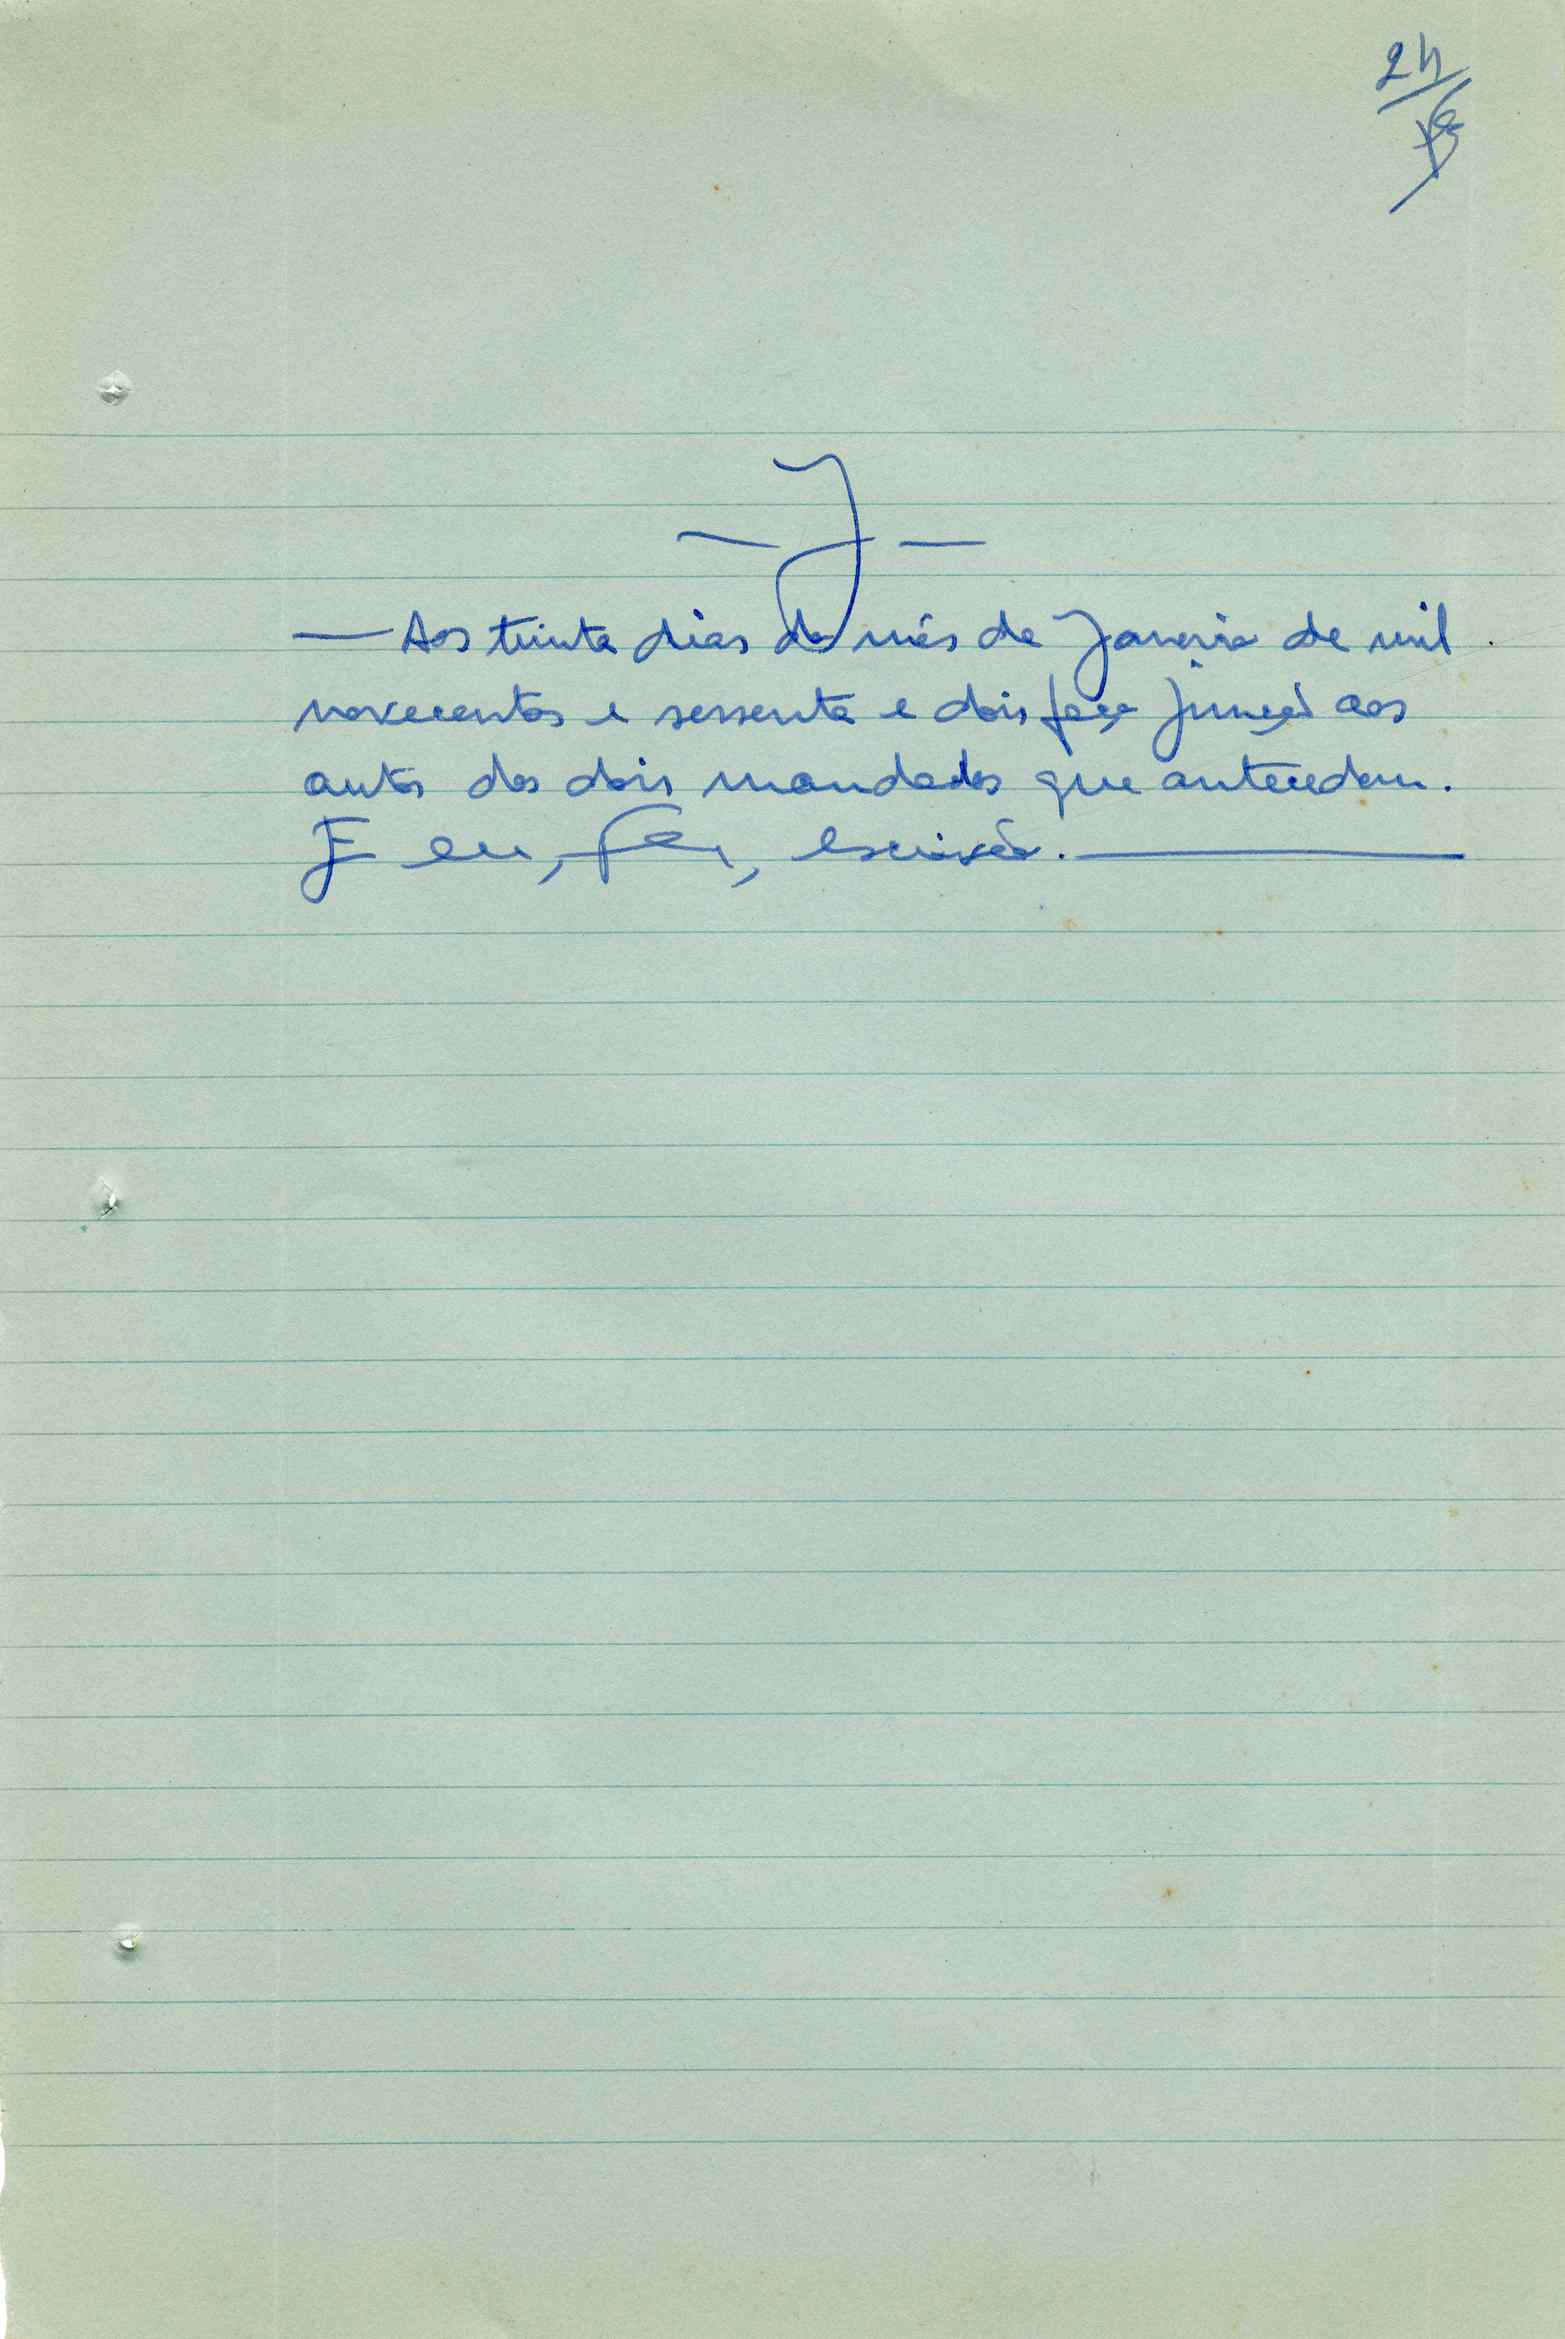 24
— J —
— Aos trinta dias do mês de Janeiro de mil
novecentos e sessenta e dois faço junção aos
autos dos dois mandados que antecedem.
E eu, , escrivão.